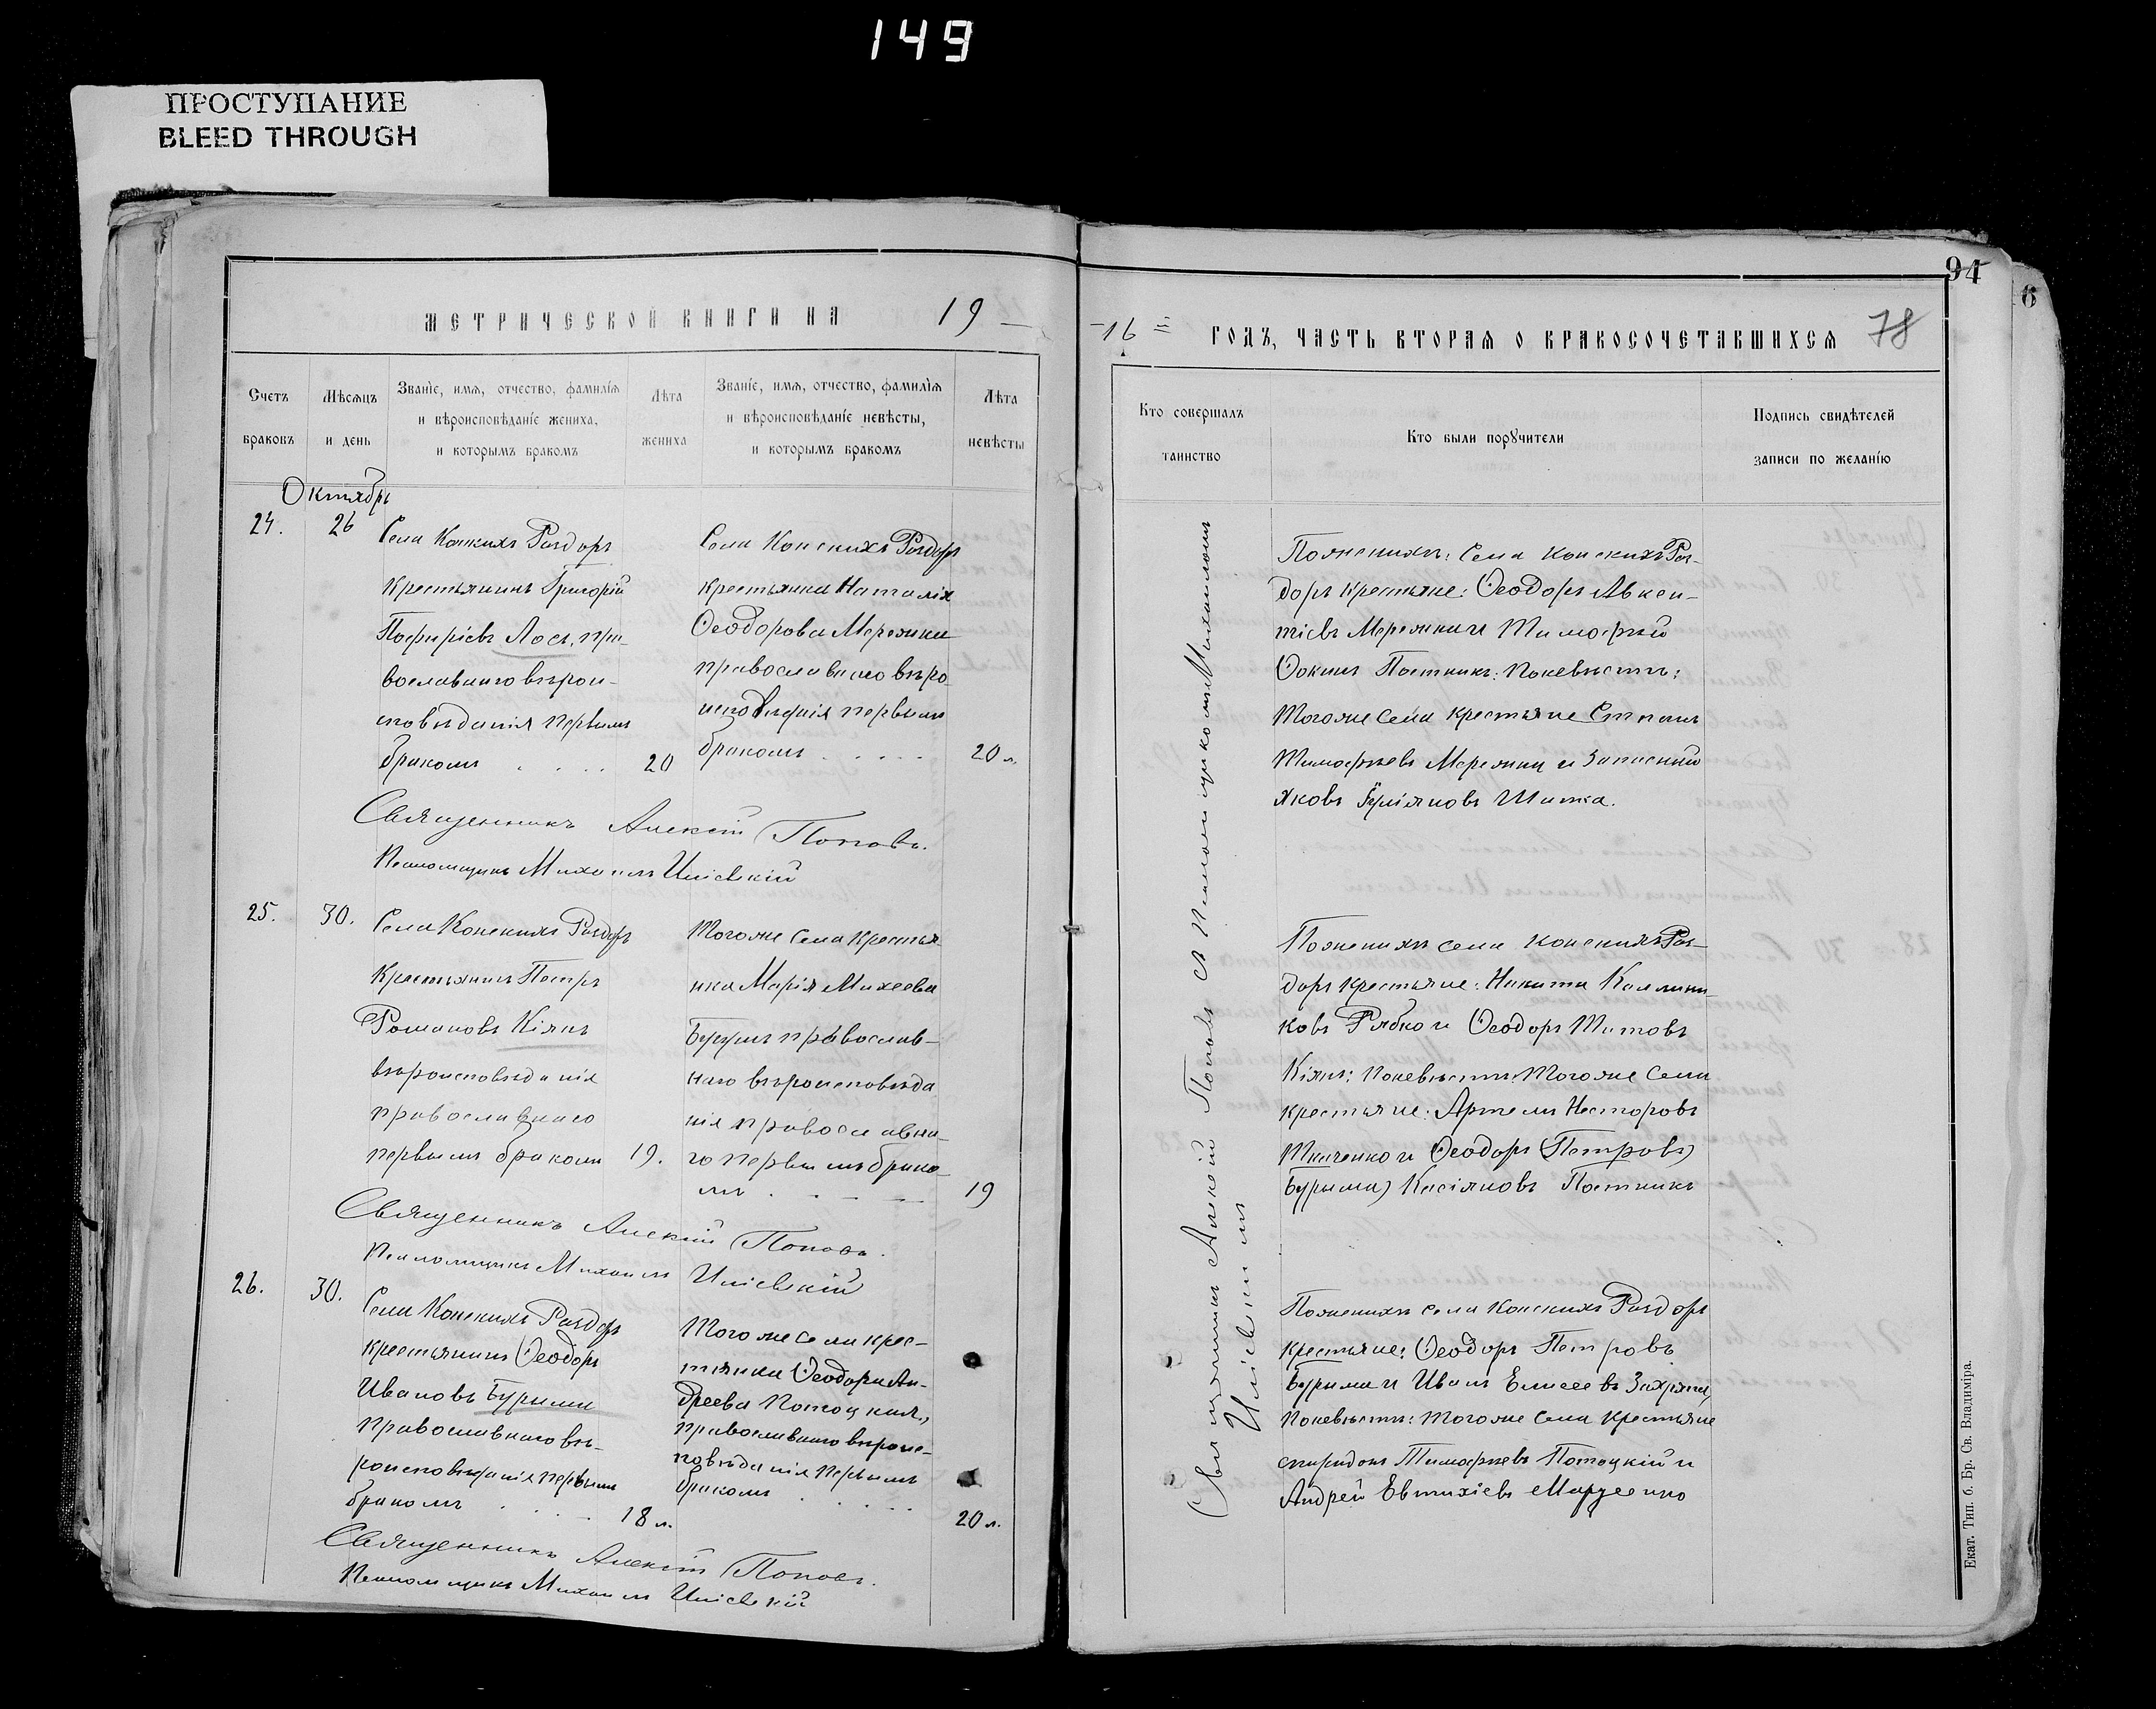 149
ПРОСТУПАНИЕ
BLEED THROUGH
94
6
МЕТРИЧЕСКОЙ КНИГИ НА 19
16 ГОДЪ, ЧАСТЬ ВТОРАЯ О БРАКОСОЧЕТАВШИХСЯ 78
Счетъ браковъ
Мѣсяцъ и день
Званіе, имя, отчество, фамилія
и вѣроисповѣданіе жениха,
и которымъ бракомъ
Лѣта жениха
Званіе, имя, отчество, фамилія
и вѣроисповѣданіе невѣсты,
и которымъ бракомъ
Лѣта невѣсты
Кто совершалъ таинство
Кто были порꙋчители
Подпись свидѣтелей
записи по желанію
Октябрь
24. 26
Села Конскихъ Раздоръ
крестьянинъ Григорій
Порфиріевъ Лось, пра-
вославнаго вѣрои-
сповѣданія первымъ
бракомъ 20
Села Конскихъ Раздоръ
крестьянка Наталія
Ѳеодорова Мережки
православнаго вѣро-
исповѣданія первымъ
бракомъ 20 л.
Священникъ Алексій Поповъ.
Псаломщикъ Михаилъ Иліевскій
По женихѣ: Села Конскихъ Раз-
доръ крестьяне: Ѳеодоръ Авксен-
тіевъ Мережки и Тимофей
Ѳокинъ Постникъ: по невѣстѣ:
Того же села крестьяне Степанъ
Тимофѣевъ Мережки и запасный
Яковъ
25. 30.
Села Конскихъ Раздоръ
крестьянинъ Петръ
Романовъ Кіянъ
вѣроисповѣданія
православнаго
первымъ бракомъ 19.
Того же села крестья-
нка Марія Михеева
православ-
наго вѣроисповѣда
нія православна-
го первымъ брако-
мъ 19
Священникъ Алексій Поповъ.
Псаломщикъ Михаилъ Иліевскій
По женихѣ села Конскихъ Раз-
доръ крестьяне: Никита Каллини-
ковъ Рябко и Ѳеодоръ Титовъ
Кіянъ; по невѣстѣ: Того же села
крестьяне: Артемъ Несторовъ
Ткаченко и Ѳеодоръ (Петровъ
Бурыма) Касіяновъ Постникъ
26. 30.
Села Конскихъ Раздоръ
крестьянинъ Ѳеодоръ
Ивановъ Бурыма
православнаго вѣ-
роисповѣданія первымъ
бракомъ 18 л.
Того же села крес-
тьянка Ѳеодора Ан-
дреева Потоцкая,
православнаго вѣроис-
повѣданія первымъ
бракомъ 20 л.
Священникъ Алексій Поповъ.
Псаломщикъ Михаилъ Иліевскій
По женихѣ села Конскихъ Раздоръ
крестьяне: Ѳеодоръ Петровъ
Бурыма и Иванъ Елисеевъ
по невѣстѣ: того же села крестьяне
Спиридонъ Тимофѣевъ Потоцкій и
Андрей Евтихіевъ
Священникъ Алексій Поповъ съ Псаломщикомъ Михаиломъ
Иліевскимъ
Екат. Тип. б. Бр. Св. Владиміра.